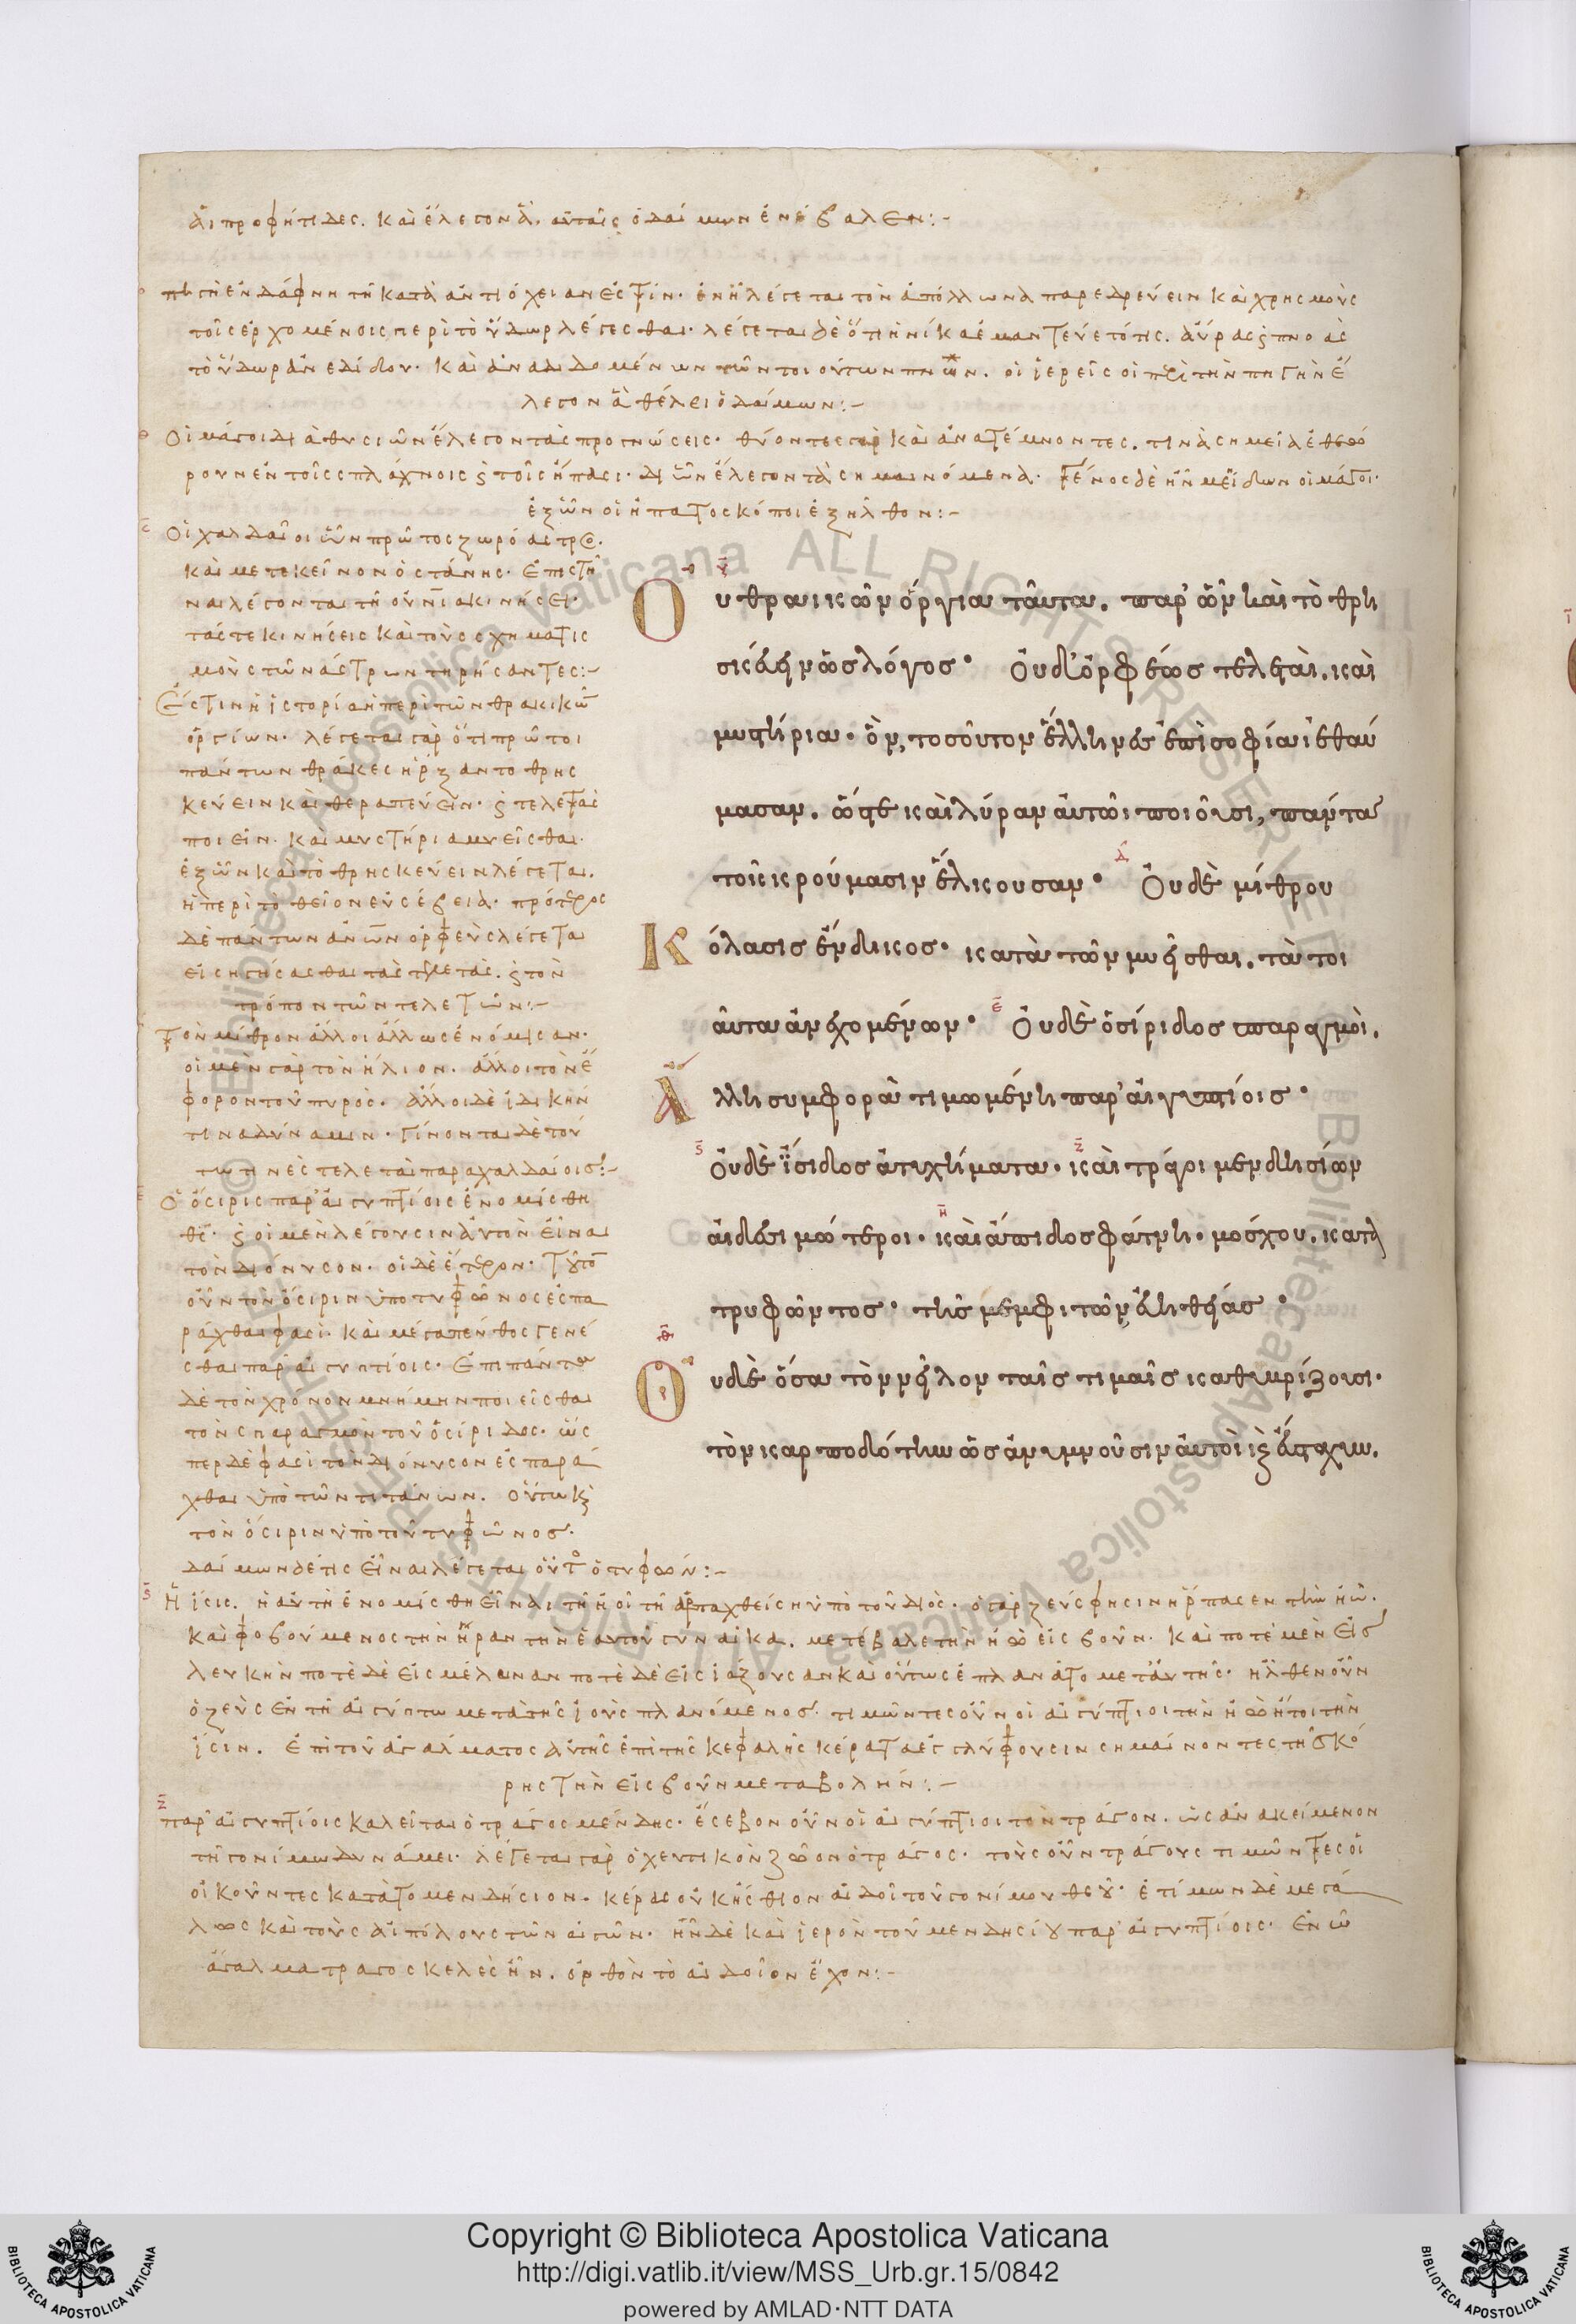 ἃ αἱ προφήτιδες. καὶ ἔλεγον ἃ, αὐταῖς ὁ δαίμων ἐνέβαλεν:-
πηγὴ ἐν δάφνη τῆ κατὰ ἀντιόχειαν ἐστίν. ἐν ἧ λέγεται τὸν ἀπόλλωνα παρεδρεύειν καὶ χρησμοὺς
τοῖς ἐρχομένοις περὶ τὸ ὕδωρ λέγεσθαι. λέγεται δὲ ὅτι ἡνίκα ἐμαντεύετό τις. αὔρας ϛ πνοὰς
τὸ ὕδωρ ἀνεδίδου. καὶ ἀναδιδομένων τῶν τοιούτων πνοῶν. οἱ ἱερεῖς οἱ περὶ τὴν πηγὴν ἔ
λεγον ἃ θέλει ὁ δαίμων:-
Οἱ μάγοι διὰ θυσιῶν ἔλεγον τὰς προγνώσεις. θύοντες γὰρ καὶ ἀνατέμνοντες. τινὰ σημεῖα ἐθεώ
ρουν ἐν τοῖς σπλάχνοις ϛ τοῖς ἥπασι. δι ὧν ἔλεγον τὰ σημαινόμενα. γένος δὲ ἦν μείδων οἱ μάγοι.
ἐξ ὧν οἱ ἡπατοσκόποι ἐξῆλθον:-
Οἱ χαλδαῖοι ὧν πρῶτος ζωρόαστρος.
καὶ μετ ἐκεῖνον ὀστάνης. ἐπιστῆ
ναι λέγονται τῆ οὐνίᾳ κινήσει.
τάς τε κινήσεις καὶ τοὺς σχηματισ
μοὺς τῶν ἄστρων τηρήσαντες:-
Ἔστιν ἡ ἱστορία ἡ περὶ τῶν θρακικῶν
ὀργίων. λέγεται γὰρ ὅτι πρῶτοι
πάντων θρᾶκες ἤρξαντο θρησ
κεύειν καὶ θεραπεύειν. ϛ τελετὰς
ποιεῖν. καὶ μυστήρια μυεῖσθαι.
ἐξ ὧν καὶ τὸ θρησκεύειν λέγεται.
ἡ περὶ τὸ θεῖον εὐσέβεια. πρότερος
δὲ πάντων ἀνῶν ὀρφεὺς λέγεται
εἰσηγήσασθαι τὰς τελετὰς. ϛ τὸν
τρόπον τῶν τελετῶν:-
Τὸν μίθραν ἄλλοι ἄλλως ἐνόμισαν.
οἱ μὲν γὰρ τὸν ἥλιον. ἄλλοι τὸν ἔ
φορον τοῦ πυρός. ἄλλοι δὲ ἰδικήν
τινα δύναμιν. γίνονται δὲ τού
τω τινὲς τελεταὶ παρὰ χαλδαίοις:-
Ὁ ὄσιρις παρ' αἰγυπτίοις ἐνομίσθη
θς. ϛ οἱ μὲν λέγουσιν αὐτὸν εἶναι
τὸν διόνυσον. οἱ δὲ ἕτερον. τοῦτον
οὖν τὸν ὄσιριν ὑπὸ τυφῶνος ἐσπα
ράχθαι φασὶ. καὶ μέγα πένθος γενέ
σθαι παρ' αἰγυπτίοις. ἐπὶ πάντα
δὲ τὸν χρόνον μνήμην ποιεῖσθαι
τὸν σπαραγμὸν τοῦ ὀσίριδος. ὥσ
περ δέ φασὶ τὸν διόνυσον ἐσπαρά
χθαι ὑπὸ τῶν τιτάνων. οὕτω καὶ
τὸν ὄσιριν ὑπὸ τοῦ τυφῶνος.
δαίμων δέ τις εἶναι λέγεται οὗτος ὁ τυφών:-
Οὐ θραικῶν ὄργια ταῦτα. παρ' ὧν καὶ τὸ θρη
σκεύειν ὡς λόγος. Οὐδ' ὀρφέως τελεταὶ. καὶ
μυστήρια. ὃν, τοσοῦτον ἕλληνες ἐπὶ σοφίαι ἐθαύ
μασαν. ὥστε καὶ λύραν αὐτῶι ποιοῦσι, πάντα
τοῖς κρούμασιν ἕλκουσαν. Οὐδὲ μίθρου
Κόλασις ἔνδικος. κατὰ τῶν μυεῖσθαι. τὰ τοι
αῦτα ἀνεχομένων. Οὐδὲ ὀσίριδος σπαραγμοὶ.
Ἄλλη συμφορὰ τιμωμένη παρ' αἰγυπτίοις.
Οὐδὲ ἴσιδος ἀτυχήματα. καὶ τράγοι μενδησίων
αἰδεσιμώτεροι. καὶ ἄπιδος φάτνη. μόσχου. κατα
τρυφῶντος. τῆς μεμφιτῶν εὐηθείας.
Οὐδὲ ὅσα τὸν νεῖλον ταῖς τιμαῖς καθυβρίζουσι.
τὸν καρποδότην ὡς ἀνυμνοῦσιν αὐτοὶ κξ εὔσταχυν.
Ἡ ἴσις. ἡ αὐτὴ ἐνομίσθη εἶναι τῆ ἰοῖ τῆ ἁρπαχθείση ὑπὸ τοῦ διὸς. ὁ γὰρ ζεύς φησιν ἥρπασεν τὴν ἰὼ.
καὶ φοβούμενος τὴν ἥραν τὴν ἑαυτοῦ γύναικα. μετέβαλε τὴν ἰὼ εἰς βοῦν. καὶ ποτὲ μὲν εἰς
λευκὴν ποτὲ δὲ εἰς μέλαιναν ποτὲ δὲ εἰς ἰάζουσαν καὶ οὕτως ἐπλανᾶτο μετ' αὐτῆς. ἦλθεν οὖν
ὁ ζεὺς ἐν τῆ αἰγύπτω μετὰ τῆς ἰοῦς πλανόμενος. τιμῶντες οὖν οἱ αἰγύπτιοι τὴν ἰὼ ἤτοι τὴν
ἴσιν. ἐπὶ τοῦ ἀγάλματος αὐτῆς ἐπὶ τῆς κεφαλῆς κέρατα ἐγλύφουσιν σημαίνοντες τῆς κό
ρης τὴν εἰς βοῦν μεταβολήν:-
παρ' αἰγυπτίοις καλεῖται ὁ τράγος μένδης. ἔσεβον οὖν οἱ αἰγύπτιοι τὸν τράγον. ὡς ἀνακείμενον
τῆ γονίμω δυνάμει. λέγεται γὰρ ὀχευτικὸν ζῶον ὁ τράγος. τοὺς οὖν τράγους τιμῶντες οἱ
οἰκοῦντες κατὰ τὸ μενδήσιον. κέρας οὐκ ἤσθιον αἰδοῖ τοῦ γονίμου θεοῦ. ἐτίμων δὲ μεγά
λως καὶ τοὺς αἰπόλους τῶν αἰγῶν. ἦν δὲ καὶ ἱερὸν τοῦ μενδησίου παρ' αἰγυπτίοις. ἐν ὧ
ἄγαλμα τραγοσκελὲς ἦν. ὀρθὸν τὸ αἰδοῖον ἔχον:-
Copyright © Biblioteca Apostolica Vaticana
http://digi.vatlib.it/view/MSS_Urb.gr.15/0842
powered by AMLAD·NTT DATA